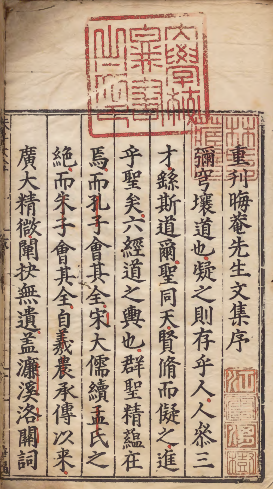 重刊晦菴先生文集序
彌穹壤道也凝之則存乎人人叅三
才繇斯道爾聖同天賢脩而凝之進
乎聖矣六經道之輿也群聖精蘊在
焉而孔子會其全宋大儒續孟氏之
絶而朱子會其全自羲農承傳以來
廣大精微闡抉無遺蓋濂溪洛關詞